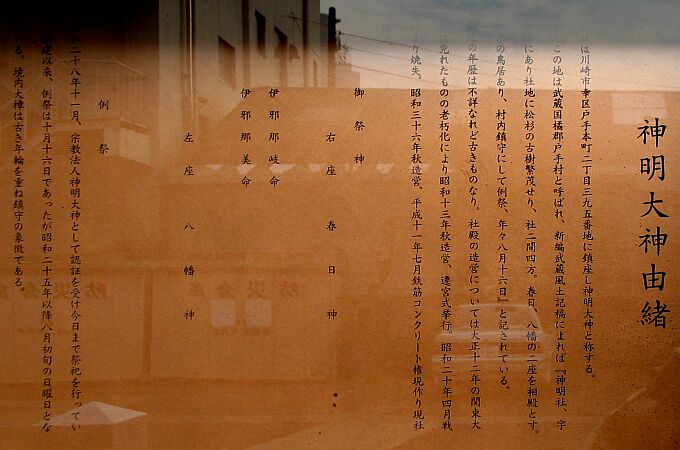 神明大神由緒
は川崎市幸区戸手本町二丁目三九五番地に鎮座し神明大神と称する。
この地は武蔵国橘郡戸手村と呼ばれ、新編武蔵風土記稿によれば『神明社、字
にあり社地に松杉の古樹繁茂せり、社二間四方。春日、八幡の二座を相殿とす。
の鳥居あり、村内鎮守にして例祭、年々八月十六日』と記されている。
の年歴は不詳なれど古きものなり。社殿の造営については大正十二年の関東大
免れたものの老朽化により昭和十三年秋造営、遷宮式挙行。昭和二十年四月戦
り焼失。昭和三十六年秋造営。平成十一年七月鉄筋コンクリート権現作り現社
御祭神
右座 春日神
伊邪那岐命
伊邪那美命
左座 八幡神
例祭
和二十八年十一月、宗教法人神明大神として認証を受け今日まで祭祀を行ってい
建以来、例祭は十月十六日であったが昭和二十五年以降八月初旬の日曜日とな
る。境内大樟は古き年輪を重ね鎮守の象徴である。